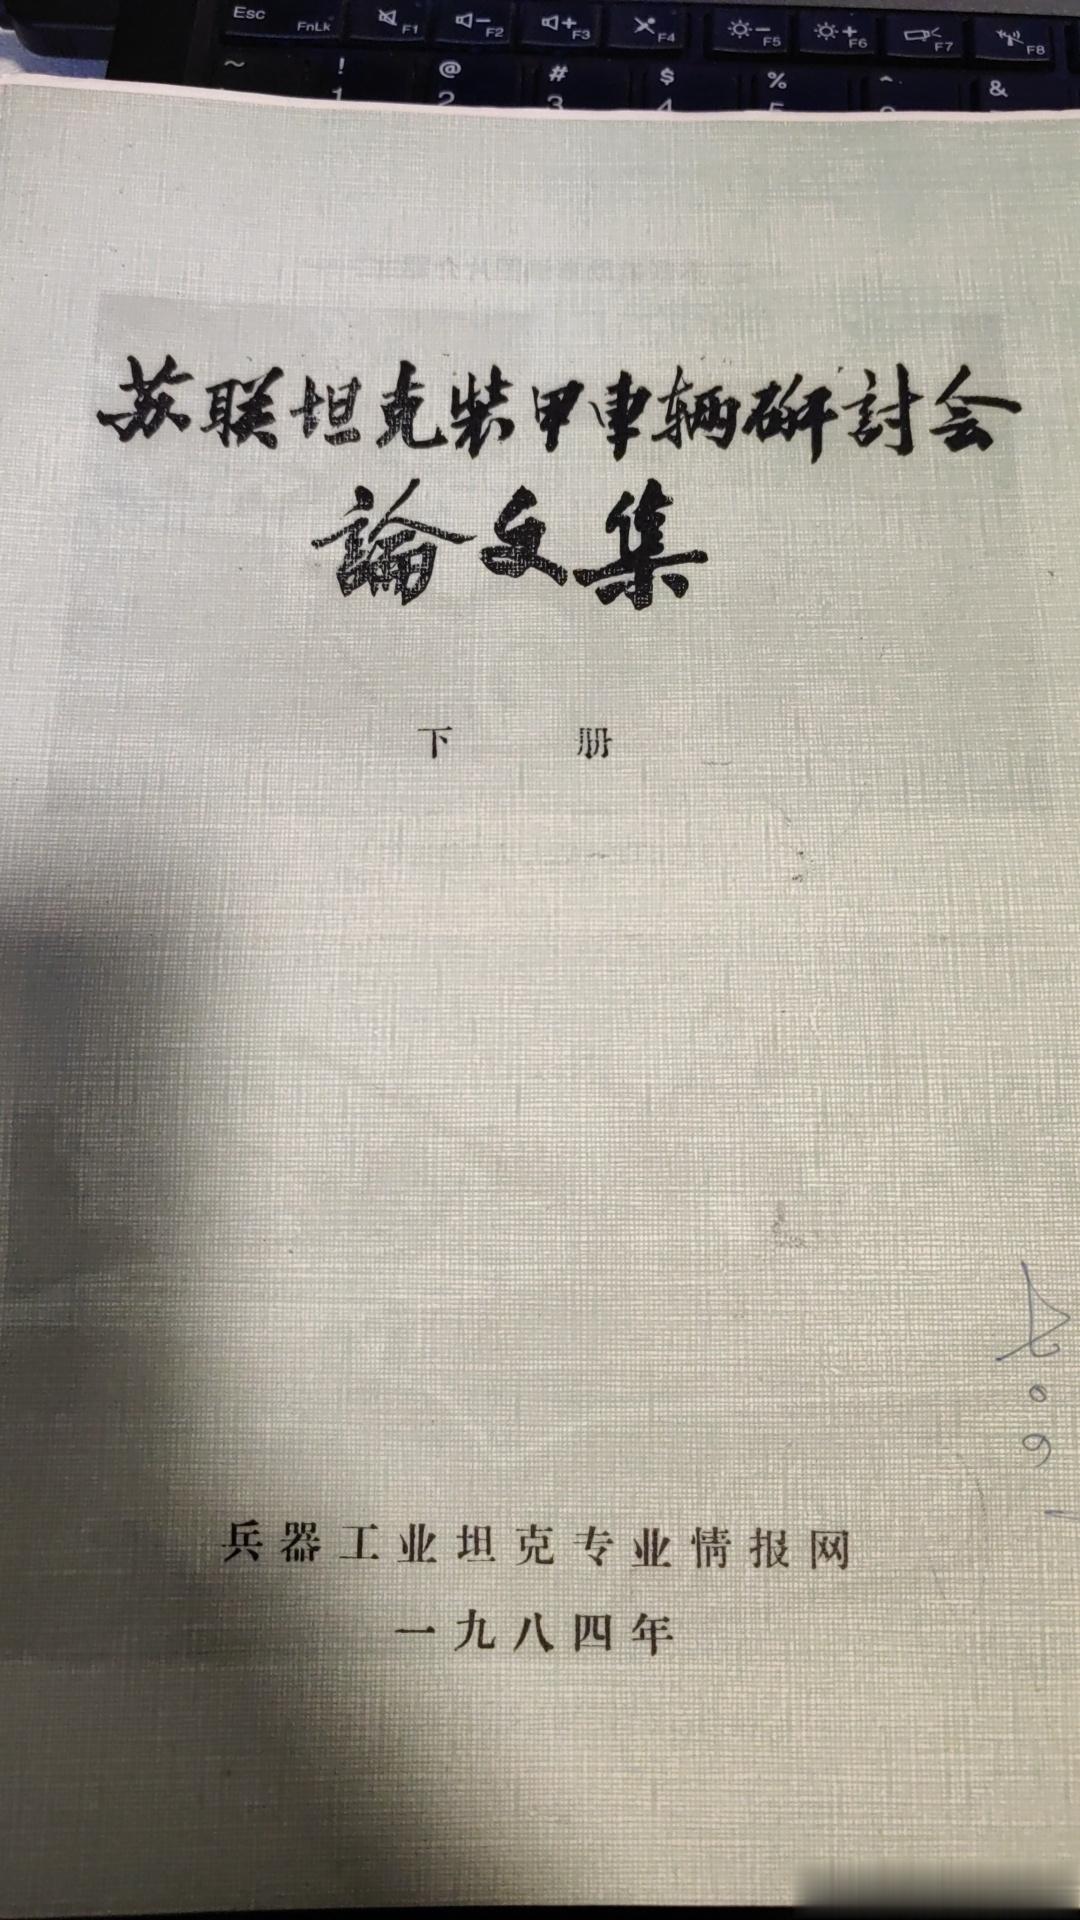 Esc FnLk F1 F2 F3 F4 F5 F6 F7 F8
~ ! @ # $ % ^ &
1 2 3 4 5
苏联坦克装甲车辆研討会
論文集
下册
兵器工业坦克专业情报网
一九八四年